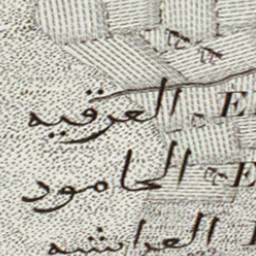 العرقيه E
الحامود E
العراشيه